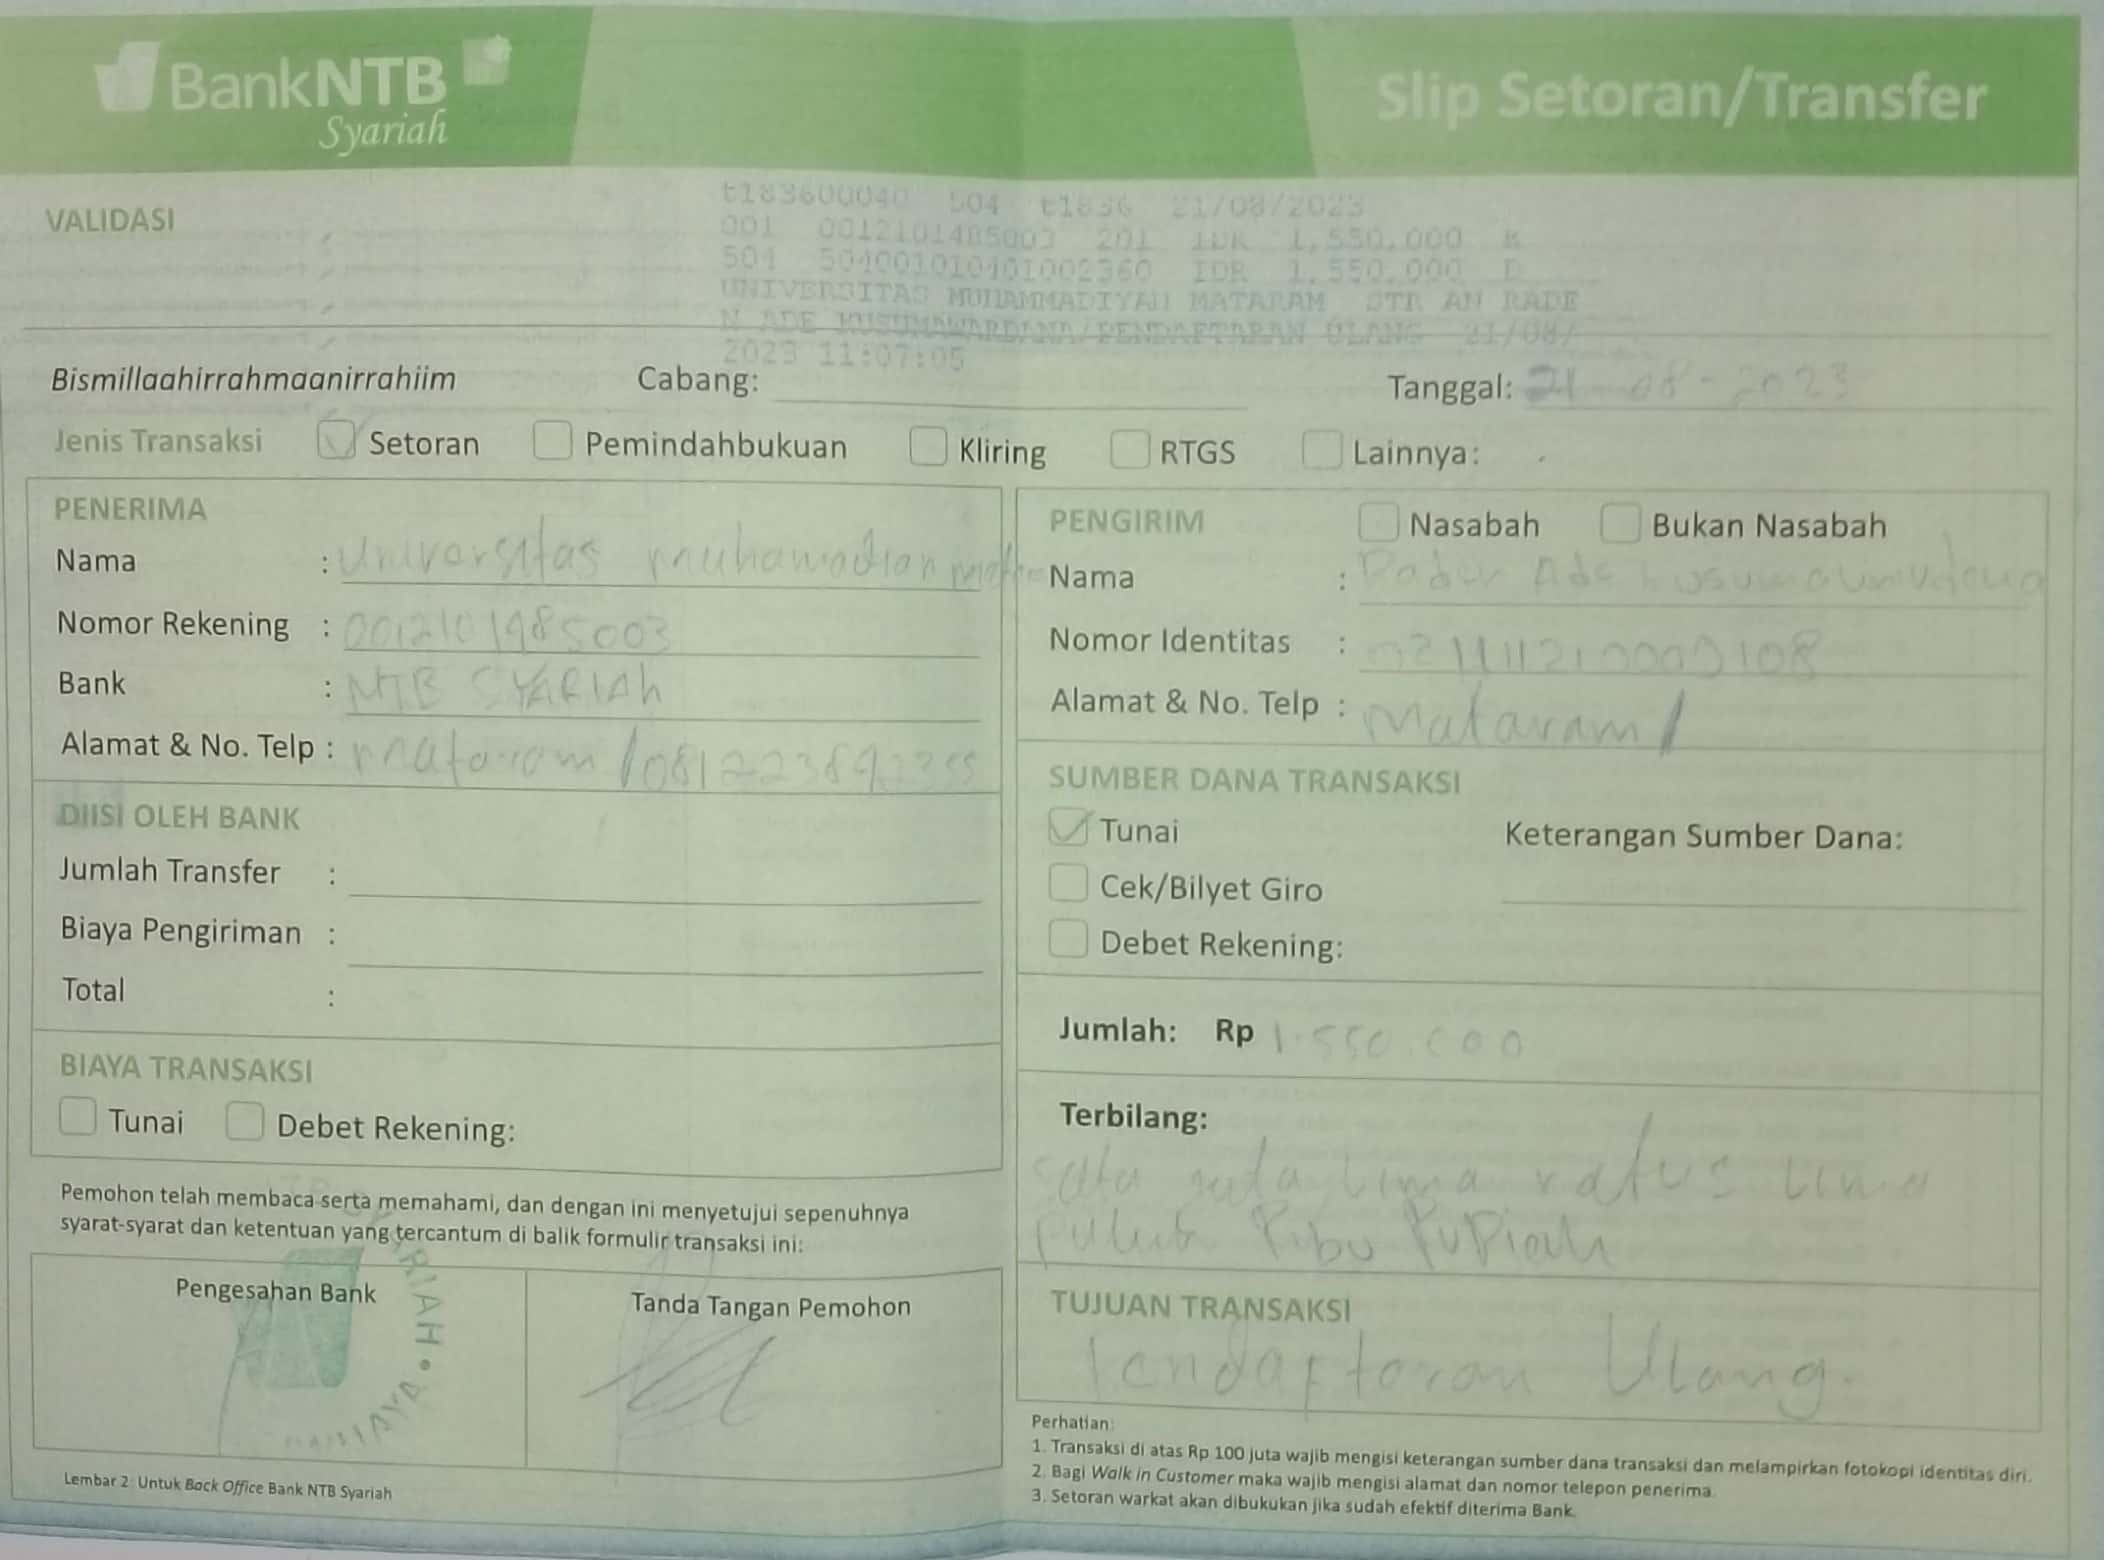 BankNTB
Syariah
Slip Setoran/Transfer
VALIDASI
t183600040 504 t1836 21/08/2023
001 0012101485003 201 IDR 1,550,000 K
504 504001010401002360 IDR 1,550,000 D
UNIVERSITAS MUHAMMADIYAH MATARAM STR AN RADE
N ADE KUSUMAWARDANA/PENDAFTARAN ULANG 21/08/
2023 11:07:05
Bismillaahirrahmaanirrahiim Cabang: Tanggal: 21-08-2023
Jenis Transaksi Setoran Pemindahbukuan Kliring RTGS Lainnya:
PENERIMA
Nama : Universitas
Nomor Rekening : 0012101485003
Bank : NTB SYARIAh
Alamat & No. Telp : mataram /
DIISI OLEH BANK
Jumlah Transfer :
Biaya Pengiriman :
Total :
BIAYA TRANSAKSI
Tunai Debet Rekening:
Pemohon telah membaca serta memahami, dan dengan ini menyetujui sepenuhnya
syarat-syarat dan ketentuan yang tercantum di balik formulir transaksi ini:
Pengesahan Bank
RIAH
Tanda Tangan Pemohon
Lembar 2: Untuk Back Office Bank NTB Syariah
PENGIRIM Nasabah Bukan Nasabah
Nama : Ade
Nomor Identitas :
Alamat & No. Telp : Mataram /
SUMBER DANA TRANSAKSI
Tunai Keterangan Sumber Dana:
Cek/Bilyet Giro
Debet Rekening:
Jumlah: Rp 1.550.000
Terbilang:
satu juta lima ratus lima
puluh Ribu Rupiah
TUJUAN TRANSAKSI
Pendaftaran Ulang.
Perhatian:
1. Transaksi di atas Rp 100 juta wajib mengisi keterangan sumber dana transaksi dan melampirkan fotokopi identitas diri.
2. Bagi Walk in Customer maka wajib mengisi alamat dan nomor telepon penerima.
3. Setoran warkat akan dibukukan jika sudah efektif diterima Bank.